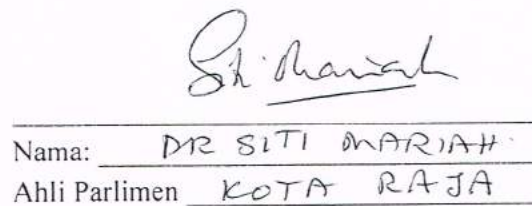 Siti Mariah
Nama: DR SITI MARIAH.
Ahli Parlimen KOTA RAJA